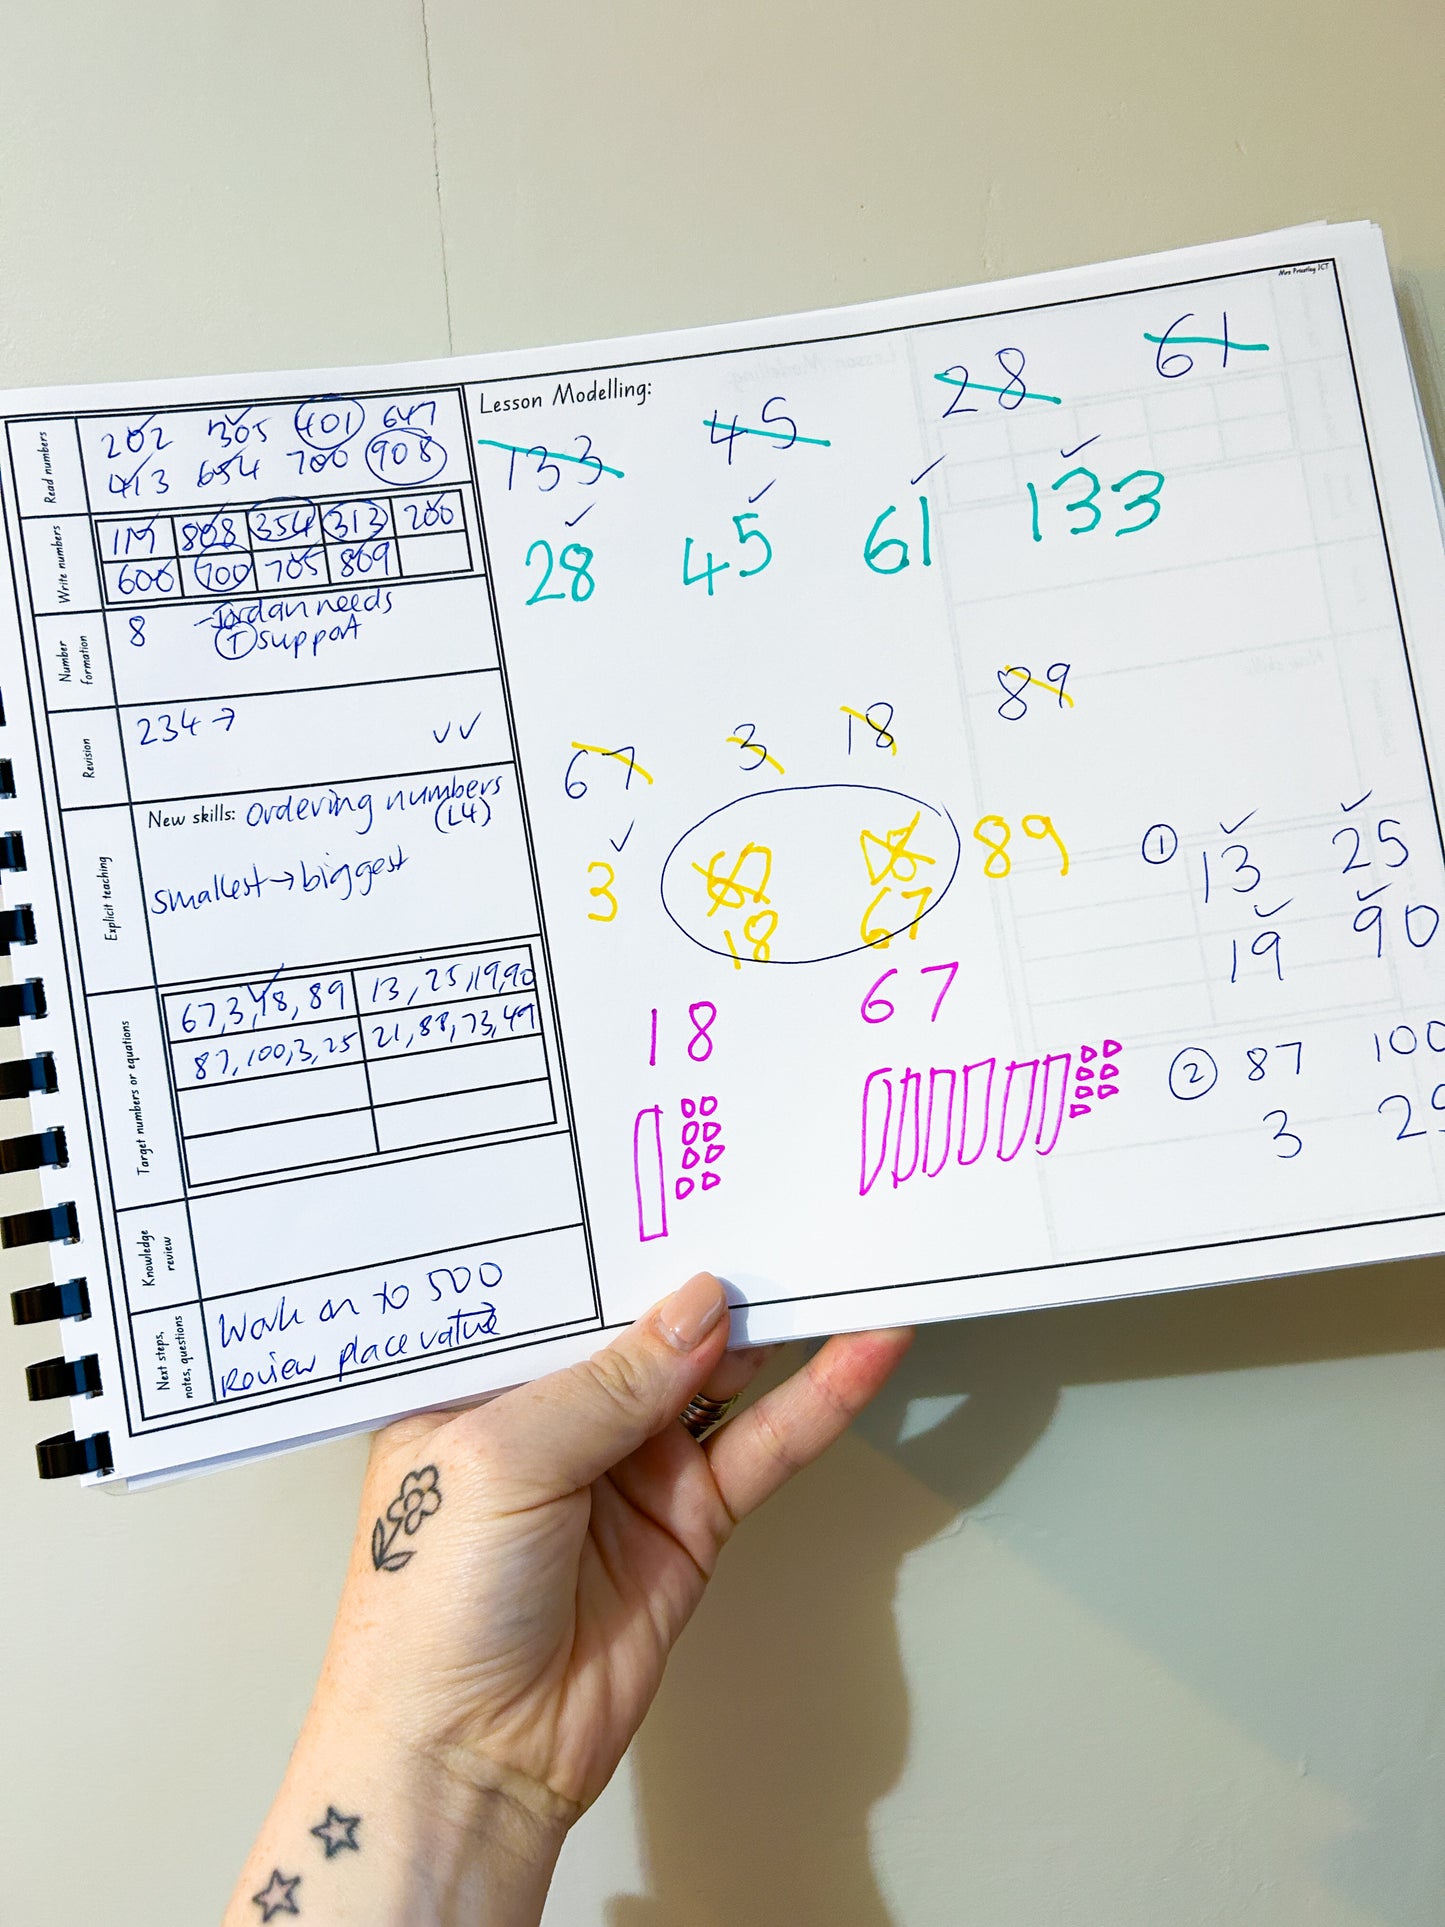 Mrs Priestley ICT
Read numbers
202 305 401 647
413 654 700 908
Write numbers
117 808 354 313 200
600 700 705 809
Number formation
8 - Jordan needs
T support
Revision
234 →
Explicit teaching
New skills: Ordering numbers
(L4)
smallest → biggest
Target numbers or equations
67, 3, 18, 89 13, 25, 19, 90
87, 100, 3, 25 21, 88, 73, 49
Knowledge review
Next steps, notes, questions
Work on to 500
Review place value
Lesson Modelling:
133 45 28 61
28 45 61 133
67 3 18 89
3 67 18 89
18 67
18 67
1 13 25
19 90
2 87 100
3 25